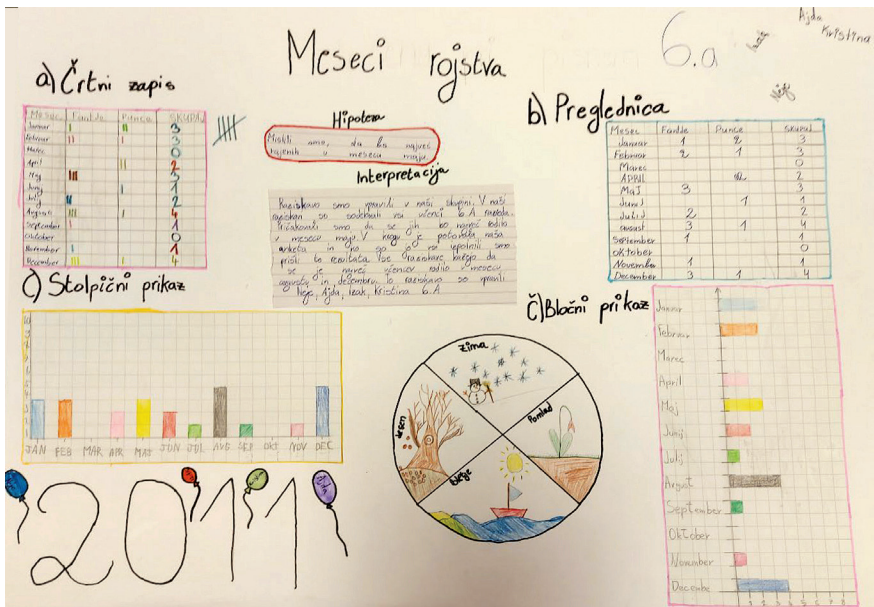 Meseci rojstva
6.a
Ajda
Kristina
a) Črtni zapis
Mesec Fantje Punce SKUPAJ
Januar 3
Februar 3
Marec 0
April 2
Maj 3
Junij 1
Julij 2
Avgust 4
September 1
Oktober 0
November 1
December 4
Hipoteza
Mislili smo, da bo največ
rojenih v mesecu maju.
Interpretacija
Raziskavo smo opravili v naši skupini. V naši
raziskavi so sodelovali vsi učenci 6.A razreda.
smo, da se jih bo največ rodilo
v mesecu maju. V krogu je potovala naša
anketa in ko so jo vsi izpolnili smo
prišli do rezultata. Vse kažejo da
se je največ učencev rodilo v mesecu
avgustu in decembru. To raziskavo so opravili
Neja, Ajda, Izak, Kristina 6.A
b) Preglednica
Mesec Fantje Punce SKUPAJ
Januar 1 2 3
Februar 2 1 3
Marec 0
APRIL 2 2
MaJ 3 3
JuniJ 1 1
JuliJ 2 2
avgust 3 1 4
September 1 1
oktober 0
November 1 1
December 3 1 4
c) Stolpični prikaz
JAN FEB MAR APR MAJ JUN JUL AVG SEP OKT NOV DEC
zima
Pomlad
Jesen
Č) Bločni prikaz
Januar
Februar
Marec
April
Maj
Junij
Julij
Avgust
September
Oktober
November
Decembe
2011